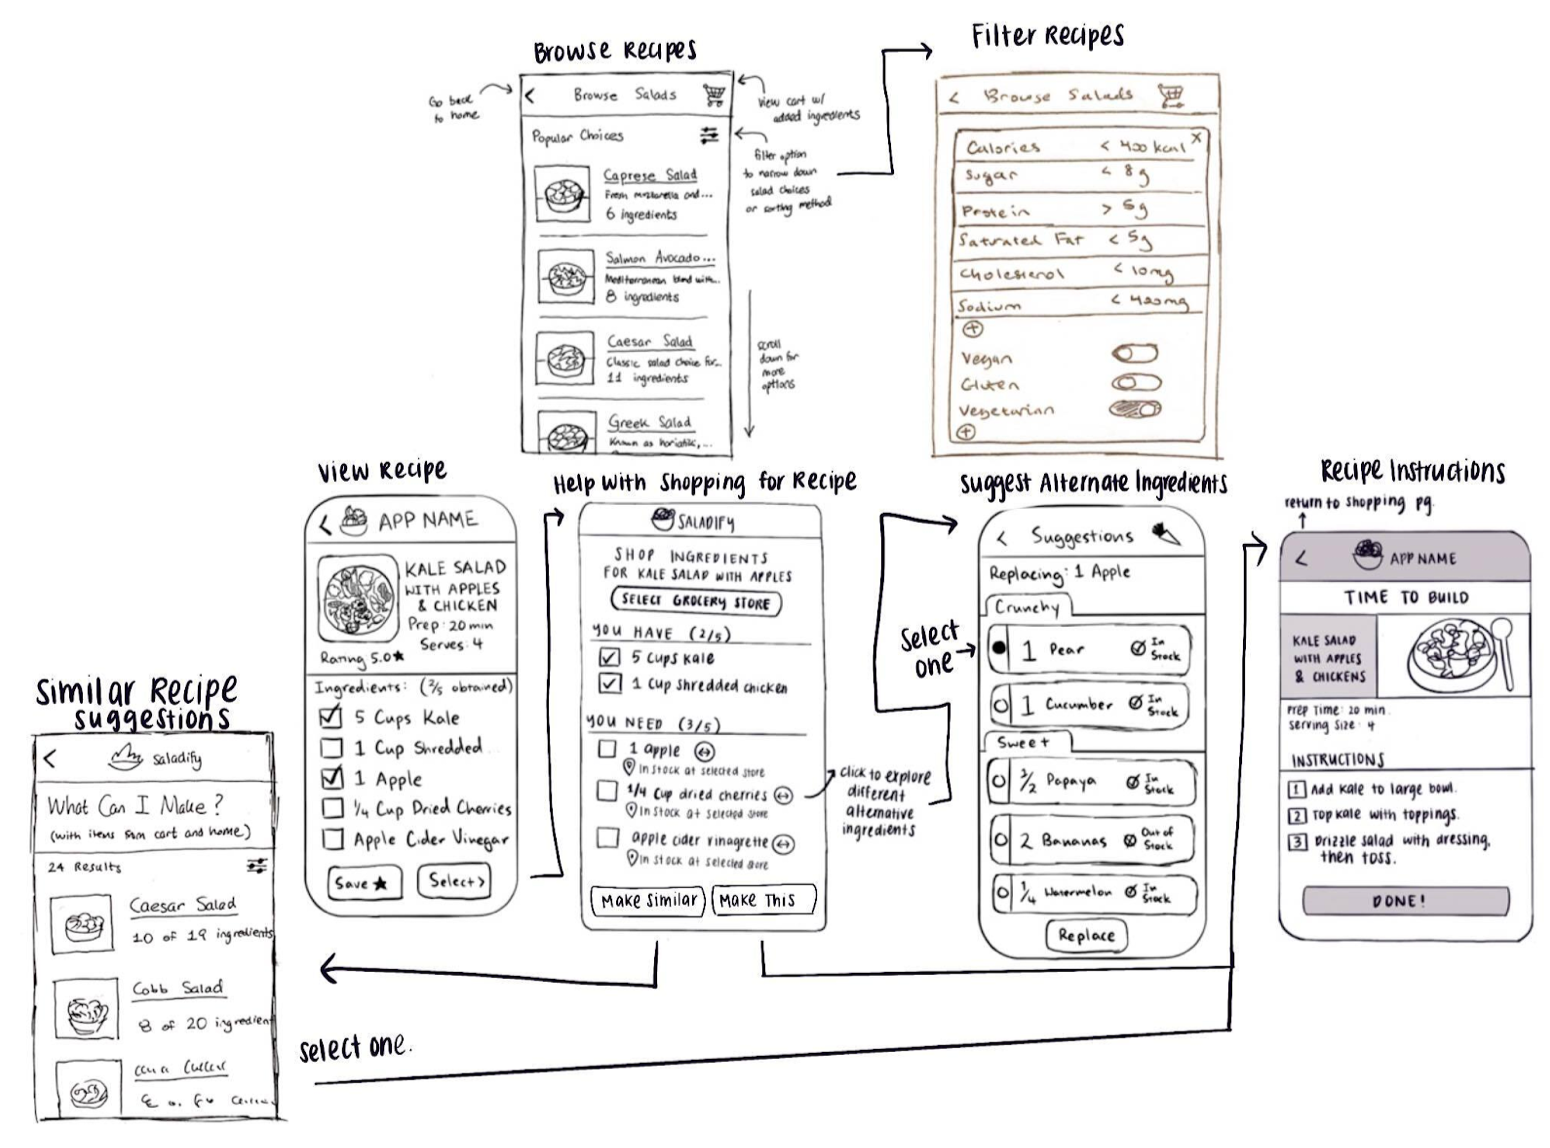 Browse Recipes
Go back
to home
<
Browse Salads
View cart w/
added ingredients
Popular Choices
filter option
to narrow down
salad choices
or sorting method
Caprese Salad
Fresh mozzarella and...
6 ingredients
Salmon Avocado...
Mediterranean blend with...
8 ingredients
Caesar Salad
Classic salad choice for...
11 ingredients
Greek Salad
Known as horiatiki,...
scroll
down for
more
options
Filter Recipes
< Browse Salads
Calories < 400 kcal X
Sugar < 8g
Protein > 5g
Saturated Fat < 5g
Cholesterol < 10mg
Sodium < 420mg
+
Vegan
Gluten
Vegetarian
+
View Recipe
< APP NAME
KALE SALAD
WITH APPLES
& CHICKEN
Prep: 20 min
Serves: 4
Rating 5.0★
Ingredients: (2/5 obtained)
5 Cups Kale
1 Cup Shredded
1 Apple
1/4 Cup Dried Cherries
Apple Cider Vinegar
Save ★
Select >
Help With Shopping for Recipe
SALADIFY
SHOP INGREDIENTS
FOR KALE SALAD WITH APPLES
SELECT GROCERY STORE
YOU HAVE (2/5)
5 cups kale
1 cup shredded chicken
YOU NEED (3/5)
1 apple
In stock at selected store
1/4 cup dried cherries
In stock at selected store
apple cider vinagrette
In stock at selected store
Make Similar
Make This
click to explore
different
alternative
ingredients
Suggest Alternate Ingredients
< Suggestions
Replacing: 1 Apple
Crunchy
Select
one
1 Pear In
Stock
1 Cucumber In
Stock
Sweet
1/2 Papaya In
Stock
2 Bananas Out of
Stock
1/4 Watermelon In
Stock
Replace
Recipe Instructions
return to shopping pg.
< APP NAME
TIME TO BUILD
KALE SALAD
WITH APPLES
& CHICKENS
Prep Time: 20 min.
Serving Size: 4
INSTRUCTIONS
1 Add kale to large bowl.
2 Top kale with toppings.
3 Drizzle salad with dressing,
then toss.
DONE!
Similar Recipe
Suggestions
< saladify
What Can I Make?
(with items from cart and home)
24 Results
Caesar Salad
10 of 19 ingredients
Cobb Salad
8 of 20 ingredient
select one.